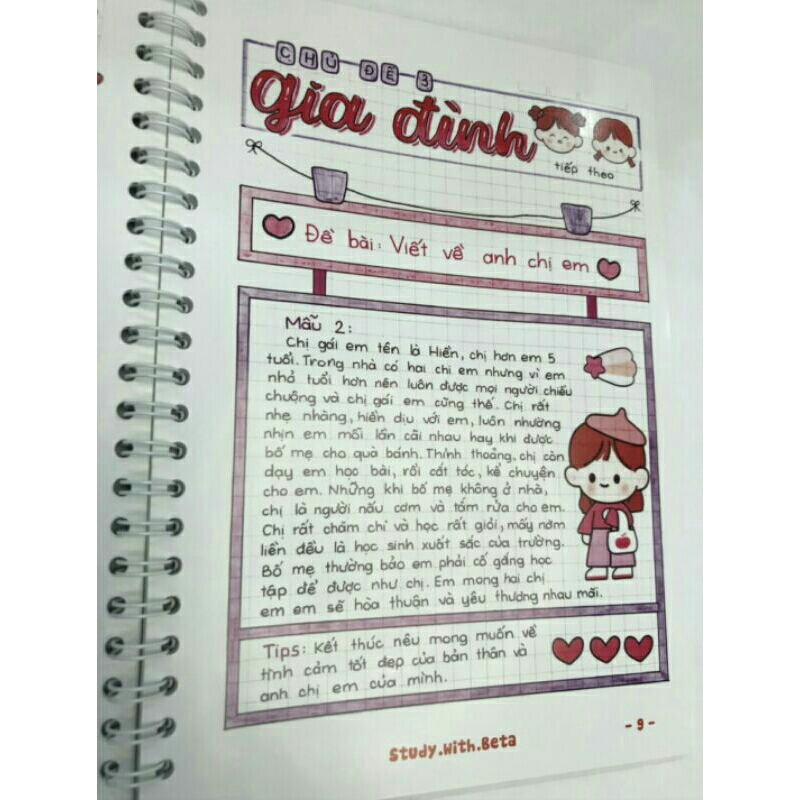 CHỦ ĐỀ 3
gia đình
tiếp theo
Đề bài: Viết về anh chị em
Mẫu 2:
Chị gái em tên là Hiền, chị hơn em 5
tuổi. Trong nhà có hai chị em nhưng vì em
nhỏ tuổi hơn nên luôn được mọi người chiều
chuộng và chị gái em cũng thế. Chị rất
nhẹ nhàng, hiền dịu với em, luôn nhường
nhịn em mỗi lần cãi nhau hay khi được
bố mẹ cho quà bánh. Thỉnh thoảng, chị còn
dạy em học bài, rồi cắt tóc, kể chuyện
cho em. Những khi bố mẹ không ở nhà,
chị là người nấu cơm và tắm rửa cho em.
Chị rất chăm chỉ và học rất giỏi, mấy năm
liền đều là học sinh xuất sắc của trường.
Bố mẹ thường bảo em phải cố gắng học
tập để được như chị. Em mong hai chị
em em sẽ hòa thuận và yêu thương nhau mãi.
Tips: Kết thúc nêu mong muốn về
tình cảm tốt đẹp của bản thân và
anh chị em của mình.
Study.With.Beta
- 9 -